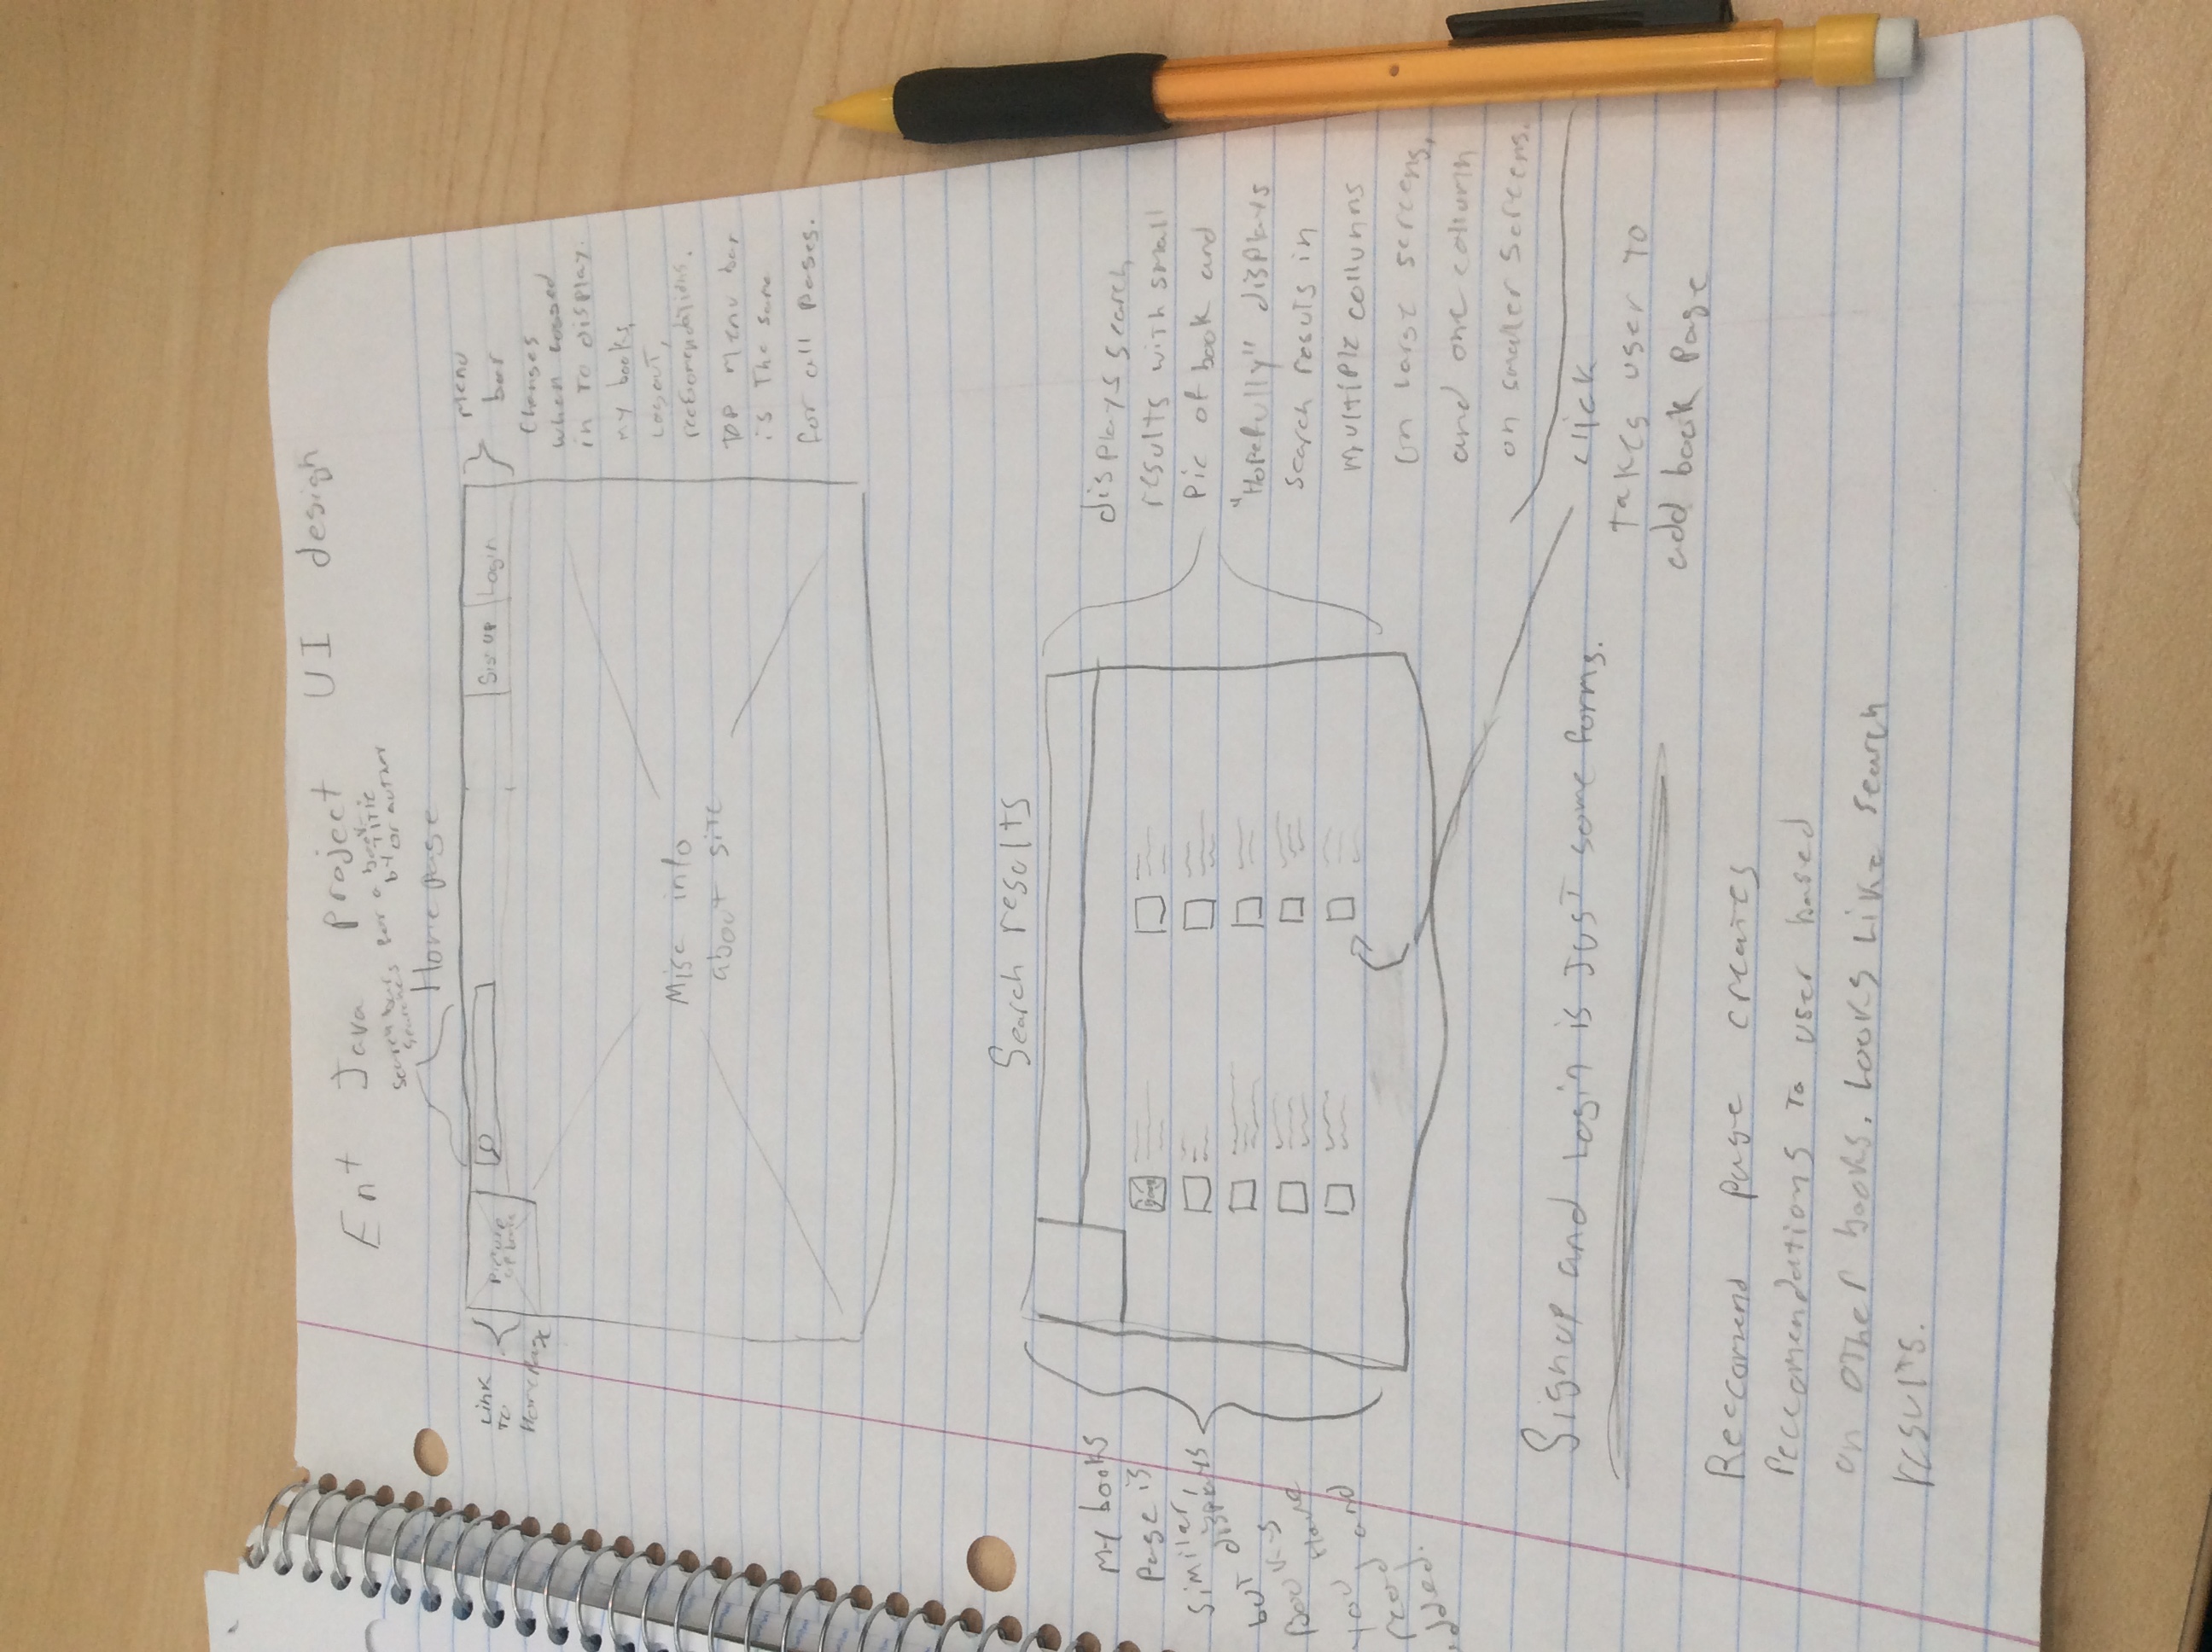 Ent Java project UI design
Search bar
searches for a book
by Title
or author
Home page
Link
To
Homepage
Picture
of book
Sign up
Login
Menu
bar
Changes
when Logged
in To display.
my books,
Logout,
reccomendations.
TOP menu bar
is The same
for all pages.
Misc info
about site
Search results
My books
Page is
similar,
but displays
Books
you Have
read and
added.
displays search
results with small
pic of book and
"Hopefully" displays
search resuts in
multiple collumns
on large screens,
and one collumn
on smaller screens.
Signup and Login is JUST some forms.
click
takes user to
add book page
Reccomend page creates
reccomendations To user based
on other books. Looks Like search
results.